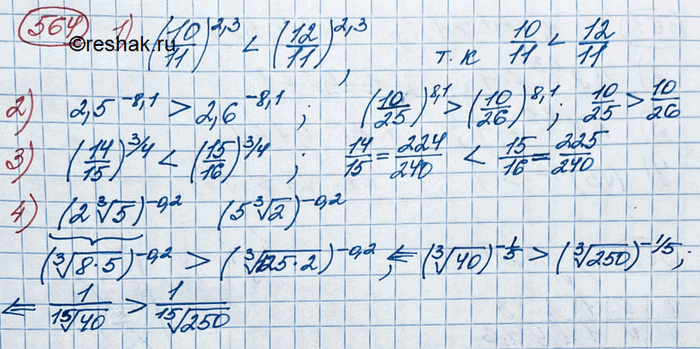 564 1) (10/11)^2,3 < (12/11)^2,3, т.к 10/11 < 12/11
©reshak.ru
2) 2,5^-8,1 > 2,6^-8,1 ; (10/25)^8,1 > (10/26)^8,1 ; 10/25 > 10/26
3) (14/15)^3/4 < (15/16)^3/4 ; 14/15 = 224/240 < 15/16 = 225/240
4) (2∛5)^-0,2 (5∛2)^-0,2
(∛8·5)^-0,2 > (∛125·2)^-0,2 , ⇐ (∛40)^-1/5 > (∛250)^-1/5 ;
⇐ 1/¹⁵√40 > 1/¹⁵√250